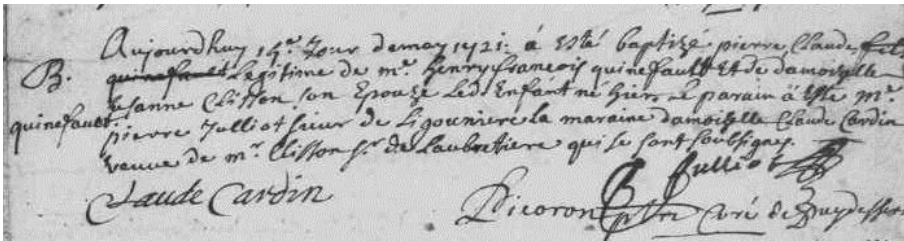 Aujourdhuy 14e. Jour demay 1721: á Esté baptizé pierre Claude fils
B.
quinefault Legitime de mr. henry francois quinefault Et de damoizelle
Jeanne Clisson son Epouze Led. Enfant né hier Le parain á Esté mr.
quinefault.
pierre Julliot sieur de Ligouniere la maraine damoizelle Claude Cardin
veuve de mr. Clisson sr. de Laubretiere qui se sont soubsignes.
Julliot
Claude Cardin
Dicoron curé de